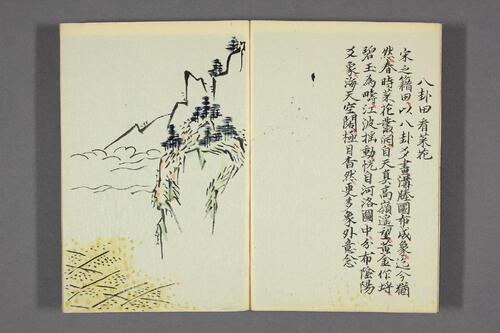 八卦田看菜花
宋之籍田以八卦爻畫溝塍圜布成象迄今猶
然春時菜花叢開自天真高嶺遥望黄金作埒
碧玉為疇江波搖動恍自河洛圖中分布陰陽
爻象海天空闊極目杳然更多象外意念